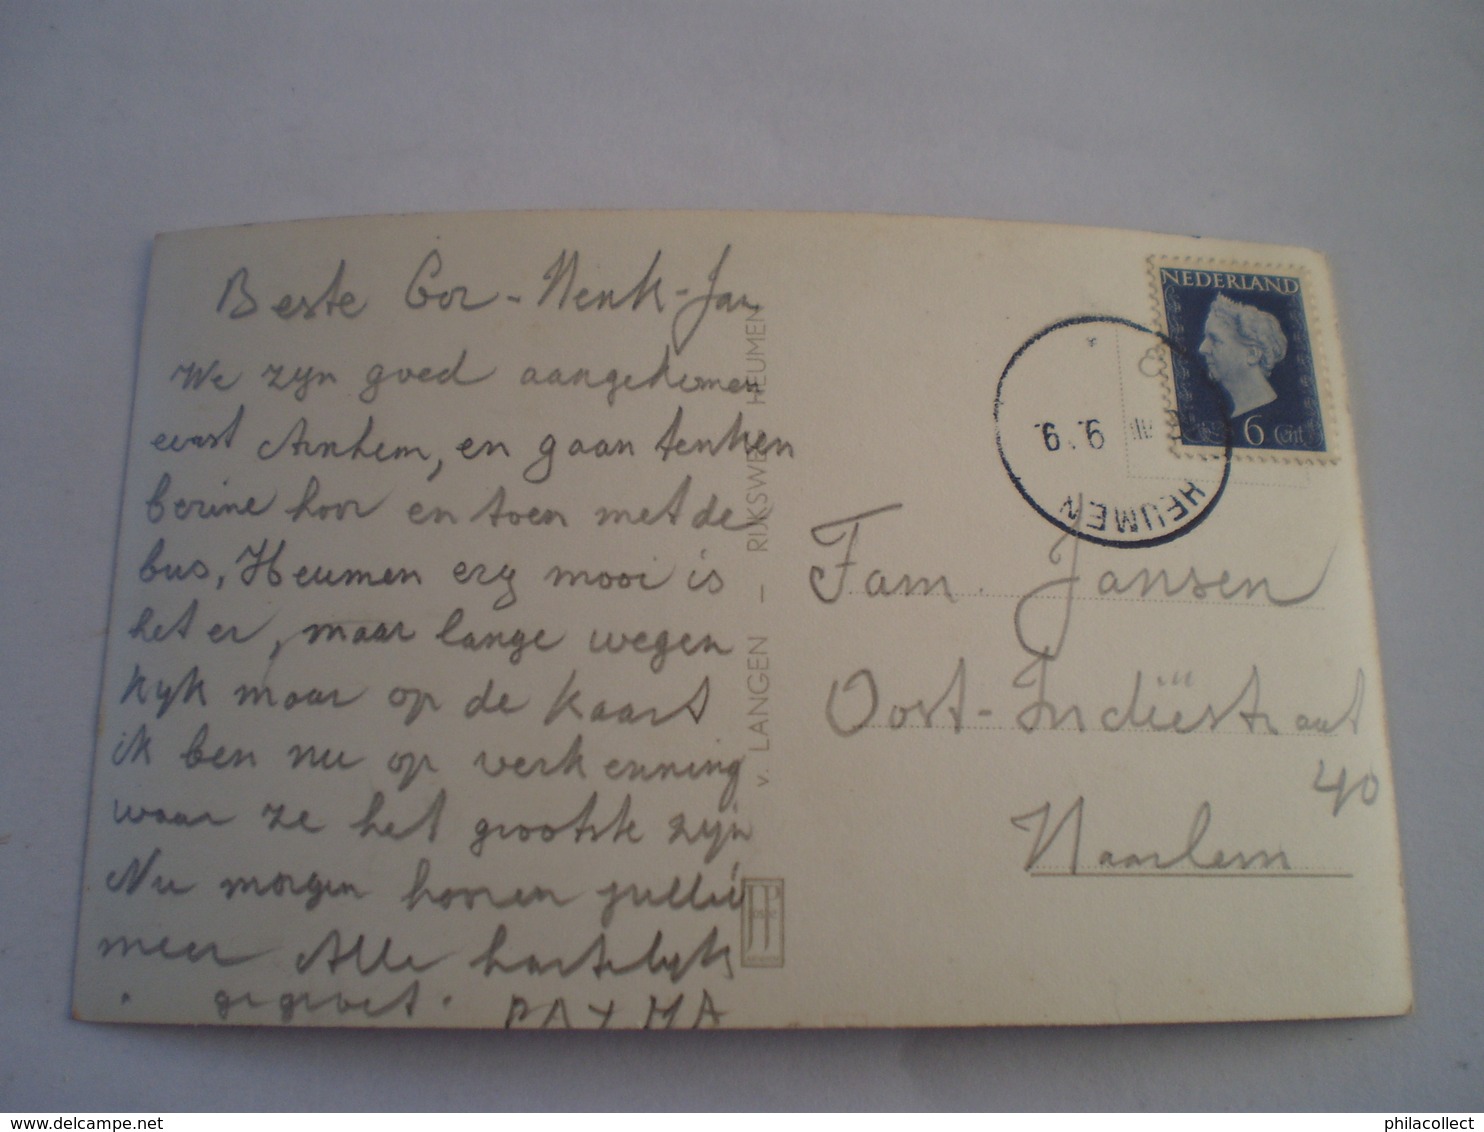 Beste Cor - Henk - Jan
We zijn goed aangekomen
Arnhem, en gaan tenken
benzine hoor en toen met de
bus, Heumen erg mooi is
het er, maar lange wegen
kijk maar op de kaart
ik ben nu op verkenning
waar ze het grootste zijn
Nu morgen horen jullie
meer Alle hartelijk
gegroet. PA + MA
v. LANGEN – RIJKSWEG HEUMEN
NEDERLAND
6 Cnt
HEUMEN
9. 9.
Fam. Jansen
Oost-Indiëstraat
40
Haarlem
philacollect